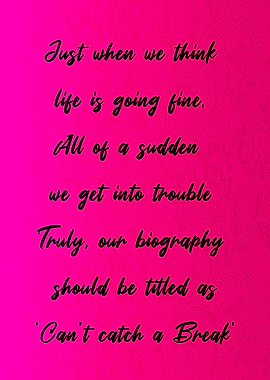 Just when we think
life is going fine,
All of a sudden
we get into trouble
Truly, our biography
should be titled as
'Can't catch a Break'